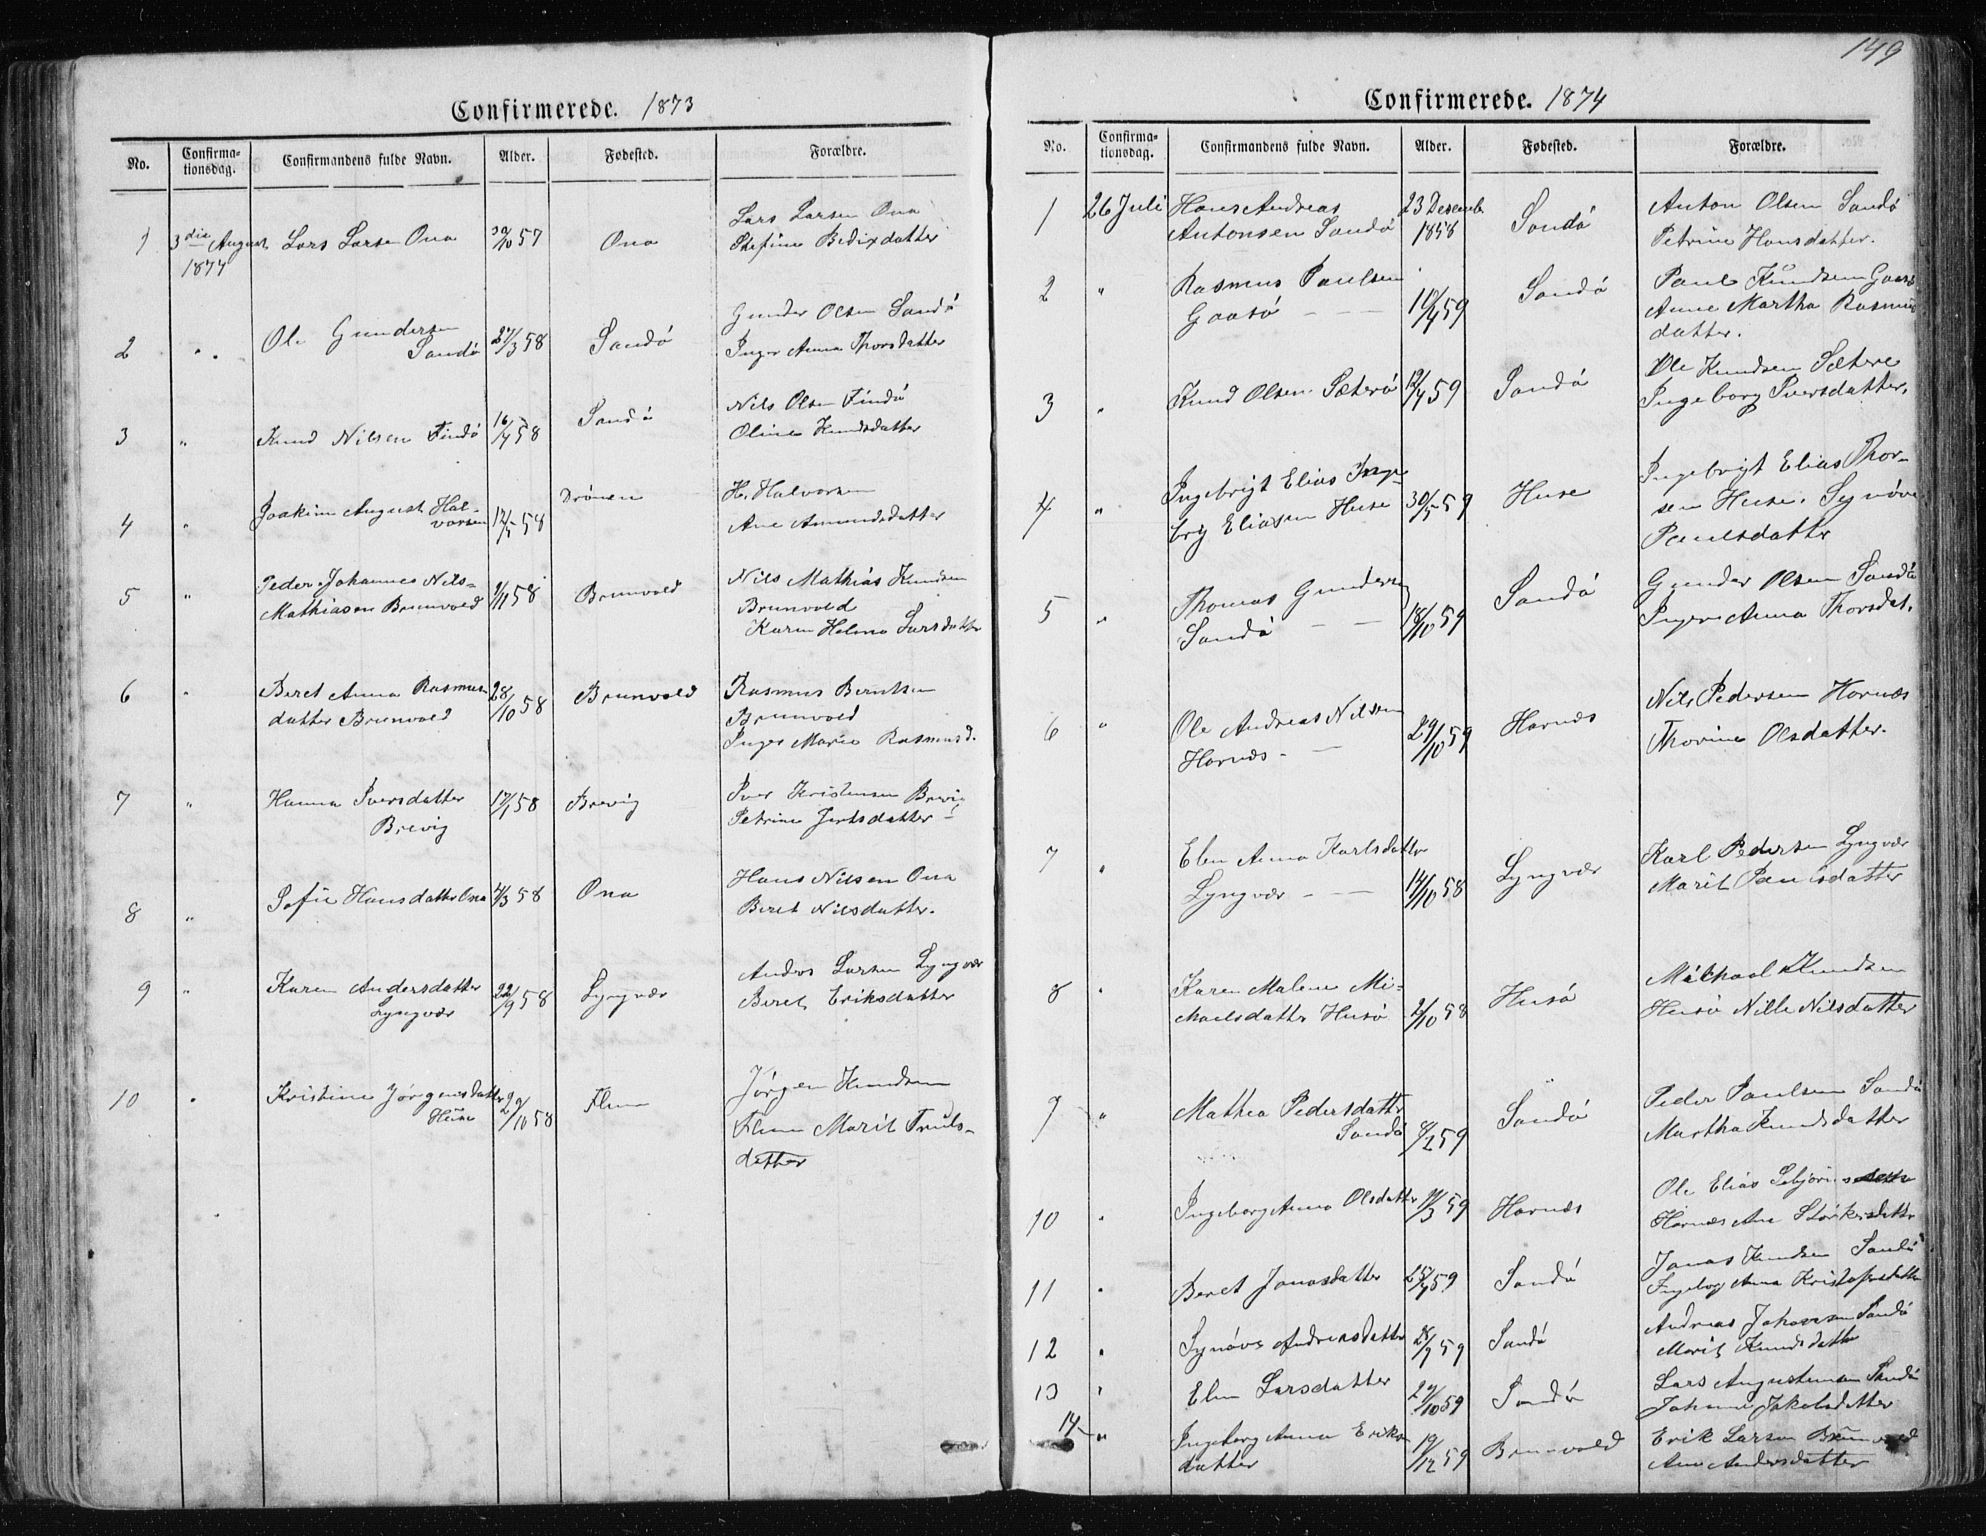 149
Confirmerede. 1873
No. Confirma-tionsdag. Confirmandens fulde Navn. Alder. Fødested. Forældre.
1 3die August 1874 Lars Larsen Ona 57 Ona Lars Larsen Ona
Stefine Bedixdatter
2 " Ole Gundersen Sandö 58 Sandö Gunder Olsen Sandö
Inger Anna Thorsdatter
3 " Knud Nilsen Findö 58 Sandö Nils Olsen Findö
Oline Knudsdatter
4 " Joakim August Hal-
vorsen 12/5 58 Drönen H. Halvorsen
Ane Amundsdatter
5 " Peder Johannes Nils-
Mathiasen Brunvold 58 Brunvold Nils Mathias Knudsen
Brunvold
Karen Larsdatter
6 " Beret Anna Rasmus
datter Brunvold 28/10 58 Brunvold Rasmus Berntsen
Brunvold
Inger Marie Rasmusd.
7 " Hanna Iversdatter
Brevig 58 Brevig Iver Kristensen Brevig
Petrine datter
8 " Sofie Hansdatter Ona 58 Ona Hans Nilsen Ona
Beret Nilsdatter.
9 " Karen Andersdatter
Lyngvær 22/9 58 Lyngvær Anders Larsen Lyngvær
Beret Eriksdatter
10 " Kristine Jørgensdatter
Huse 29/10 58 Flem Jørgen Knudsen
Flem Marit Truls-
datter
Confirmerede. 1874
No. Confirma-tionsdag. Confirmandens fulde Navn. Alder. Fødested. Forældre.
1 26 Juli Hans Andreas
Antonsen Sandö 23 Desemb. 1858 Sandö Anton Olsen Sandö
Petrine Hansdatter.
2 " Rasmus Paulsen
Gaasö 59 Sandö Paul Knudsen Gaasö
Anne Martha Rasmus
datter.
3 " Knud Olsen Sæterö 59 Sandö Ole Knudsen Sætere
Ingeborg Iversdatter.
4 " Ingebrigt Elias Inge-
brig Eliasen Huse 30/5 59 Huse Ingebrigt Elias Thor-
sen Huse. Synöve
Paulsdatter
5 " Thomas Gundersen
Sandö 18/10 59 Sandö Gunder Olsen Sandö
Inger Anna Thorsdat.
6 " Ole Andreas Nilsen
Harnæs 29/10 59 Harnæs Nils Pedersen Harnæs
Thorine Olsdatter.
7 " Elen Anna Karlsdatter
Lyngvær 14/10 58 Lyngvær Karl Pedersen Lyngvær
Marit Paulsdatter
8 " Karen Malene Mi-
kaelsdatter Husö 2/10 58 Husö Michael Knudsen
Husö Nille Nilsdatter
9 " Mathea Pedersdatter
Sandö 59 Sandö Peder Paulsen Sandö
Martha Knudsdatter
10 " Ingeborg Anna Olsdatter 59 Harnæs Ole Elias
Harnæs Ane Størkersdatter
11 " Beret Jonasdatter 59 Sandö Jonas Knudsen Sandö
Ingeborg Anna Kristofersdatter
12 " Synöve Andreasdatter 59 Sandö Andreas Johansen Sandö
Marit Knudsdatter
13 " Elen Larsdatter 29/10 59 Sandö Lars Augustinsen Sandö
Johanna Jakobsdatter
14 " Ingeborg Anna Eriks
datter 19/12 59 Brunvold Erik Larsen Brunvold
Ane Andersdatter